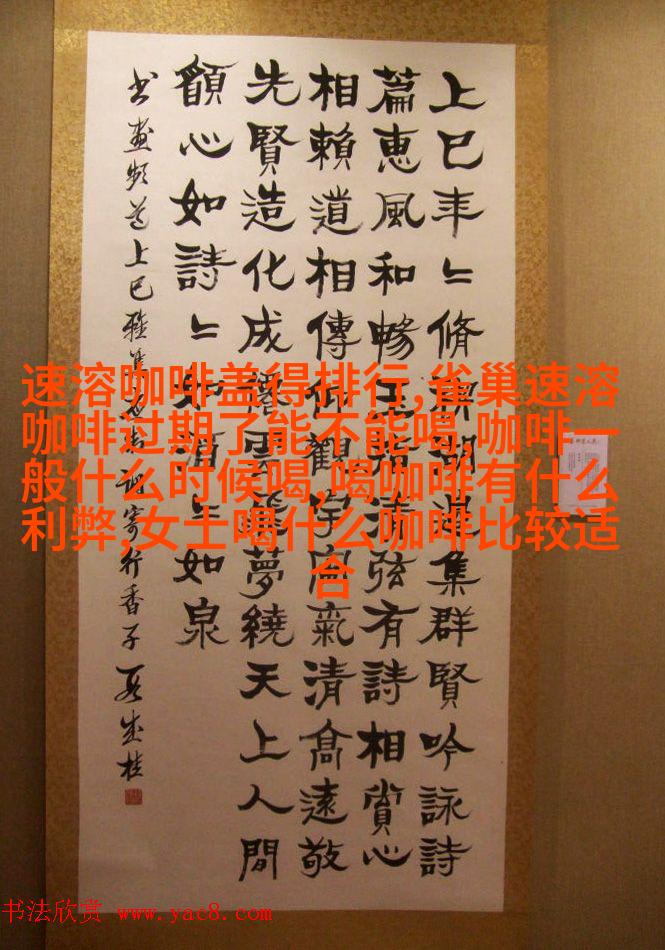 上巳年〻脩禊湖邊集群賢吟詠詩
篇惠風和暢玉指清弦有詩相賞心
相賴道相傳仰觀宇宙氣清高遠敬
先賢造化成雲箋夢繞天上人間
願心如詩〻如酒〻如泉
书畫頻道上巳雅集調寄行香子
速溶咖啡盖得排行,雀巢速溶
咖啡过期了能不能喝,咖啡一
般什么时候喝,喝咖啡有什么
利弊,女士喝什么咖啡比较适
合
书法欣赏 www.yac8.com